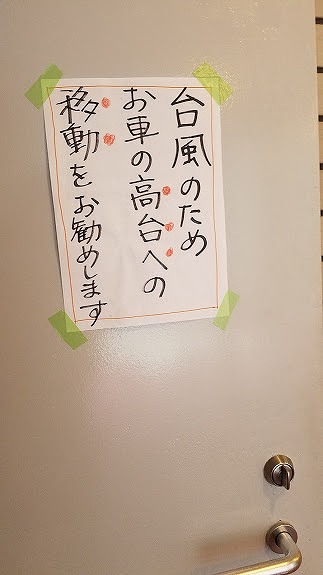 台風のため
お車の高台への
移動をお勧めします